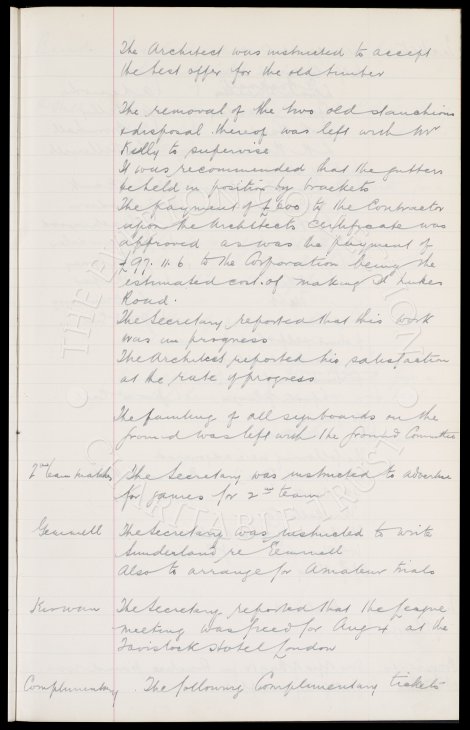 The Architect was instructed to accept
the best offer for the old timber
The removal of the two old stanchions
& disposal thereof was left with Mr
Kelly to supervise
It was recommended that the gutters
be held in position by brackets
The payment of £600 to the Contractor
upon the Architects certificate was
approved as was the payment of
£97.11.6 to the Corporation being the
estimated cost of making St Lukes
Road.
The Secretary reported that this work
was in progress
The Architect reported his satisfaction
at the rate of progress
The painting of all signboards on the
ground was left with the Ground Committee
2nd team matches The Secretary was instructed to advertise
for games for 2nd team
Gemmell The Secretary was instructed to write
Sunderland re Gemmell
Also to arrange for Amateur trials
Kirwan The Secretary reported that the League
meeting was fixed for Aug 4 at the
Tavistock Hotel London
Complimentary The following Complimentary tickets
THE EVERTON COLLECTION
CHARITABLE TRUST